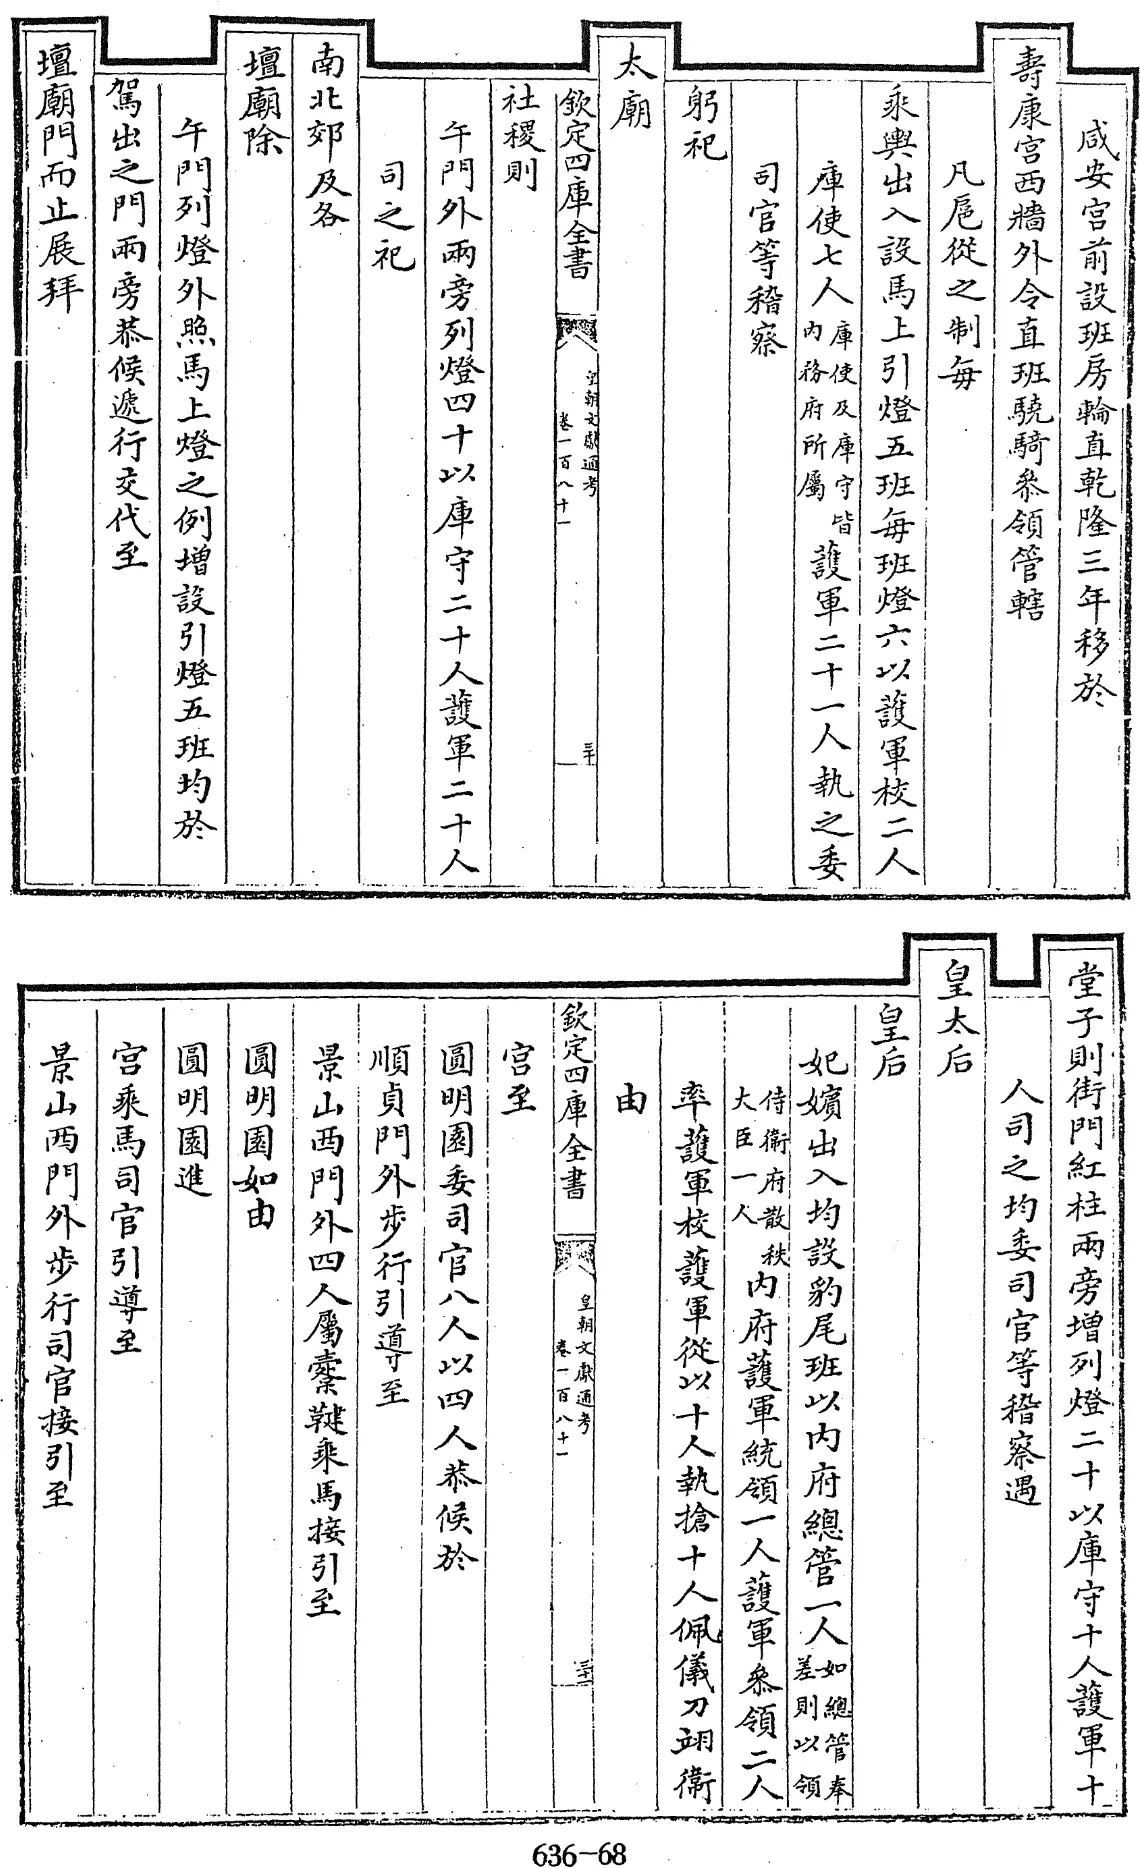 咸安宫前設班房輪直乾隆三年移於
壽康宫西牆外令直班驍騎叅領管轄
凡扈從之制每
乘輿出入設馬上引燈五班每班燈六以護軍校二人
庫使七人庫使及庫守皆内務府所屬護軍二十一人執之委
司官等稽察
躬祀
太廟
欽定四庫全書
皇朝文獻通考
卷一百八十一
三十
社稷則
午門外兩旁列燈四十以庫守二十人護軍二十人
司之祀
南北郊及各
壇廟除
午門列燈外照馬上燈之例増設引燈五班均於
駕出之門兩旁恭候遞行交代至
壇廟門而止展拜
堂子則街門紅柱兩旁増列燈二十以庫守十人護軍十
人司之均委司官等稽察遇
皇太后
皇后
妃嬪出入均設豹尾班以内府總管一人如總管奉差則以領
侍衛府散秩大臣一人内府護軍統領一人護軍叅領二人
率護軍校護軍從以十人執搶十人佩儀刀翊衛
由
欽定四庫全書
皇朝文獻通考
卷一百八十一
三十一
宫至
圓明園委司官八人以四人恭候於
順貞門外歩行引導至
景山西門外四人屬櫜鞬乘馬接引至
圓明園如由
圓明園進
宫乘馬司官引導至
景山西門外歩行司官接引至
636-68